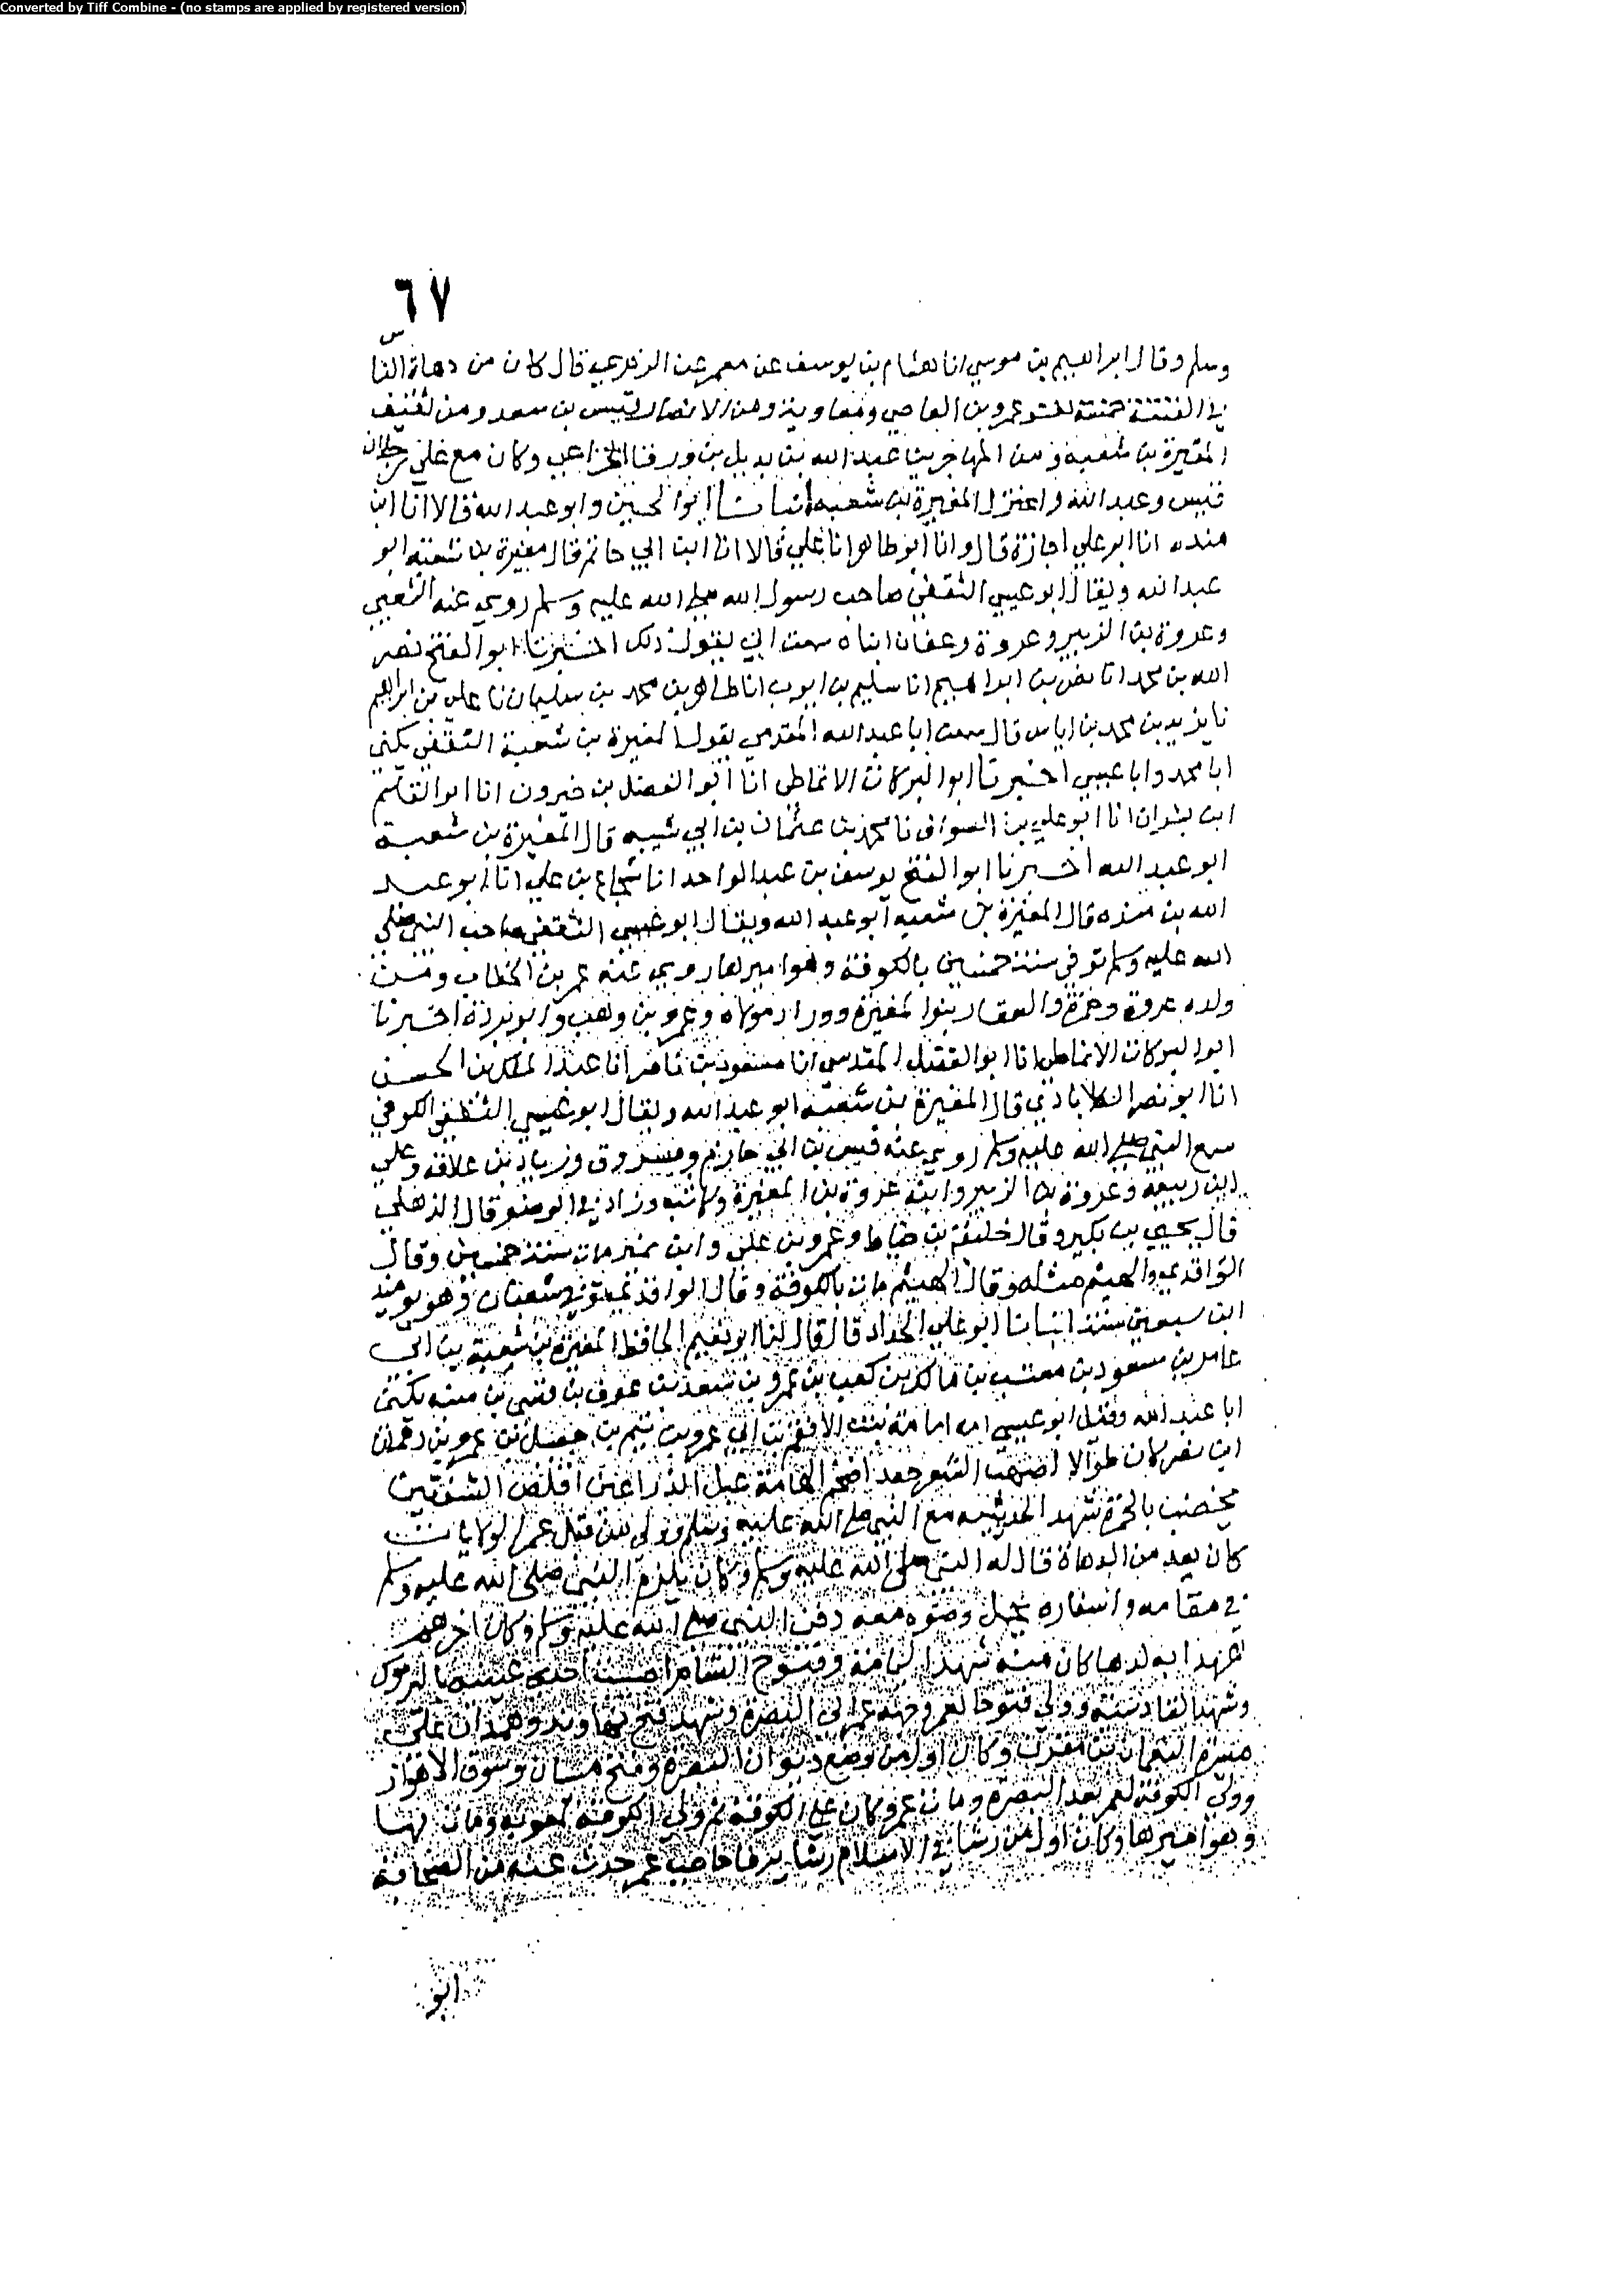 Converted by Tiff Combine - (no stamps are applied by registered version)
٦٧
وسلم وقال ابراهيم بن موسي انا هشام بن يوسف عن معمر عن الزهري قال كان من دهاة الناس
في الفتنة خمسة عمرو بن العاصي ومعاوية ومن الانصار قيس بن سعد ومن ثقيف
المغيرة بن شعبة ومن المهاجرين عبد الله بن بديل بن ورقا الخزاعي وكان مع علي رجلان
قيس وعبد الله واعتزل المغيرة بن شعبة انبانا ابو الحسين وابو عبد الله قالا انا ابن
منده انا ابو علي اجازة قال وانا ابو طاهر انا علي قالا انا ابن ابي حاتم قال مغيرة بن شعبة ابو
عبد الله ويقال ابو عيسي الثقفي صاحب رسول الله صلى الله عليه وسلم روي عنه الشعبي
وعروة بن الزبير وعروة وعفان ابناه سمعت ابي يقول ذلك اخبرنا ابو الفتح نصر
الله بن محمد انا نصر بن ابراهيم انا سليم بن ايوب انا طاهر بن محمد بن سليمان نا علي بن ابراهيم
نا يزيد بن محمد بن اياس قال سمعت ابا عبد الله المقدمي يقول المغيرة بن شعبة الثقفي يكني
ابا محمد وابا عيسي اخبرنا ابو البركات الانماطي انا ابو الفضل بن خيرون انا ابو القاسم
ابن بشران انا ابو علي بن الصواف نا محمد بن عثمان بن ابي شيبه قال المغيرة بن شعبة
ابو عبد الله اخبرنا ابو الفتح يوسف بن عبد الواحد انا شجاع بن علي انا ابو عبد
الله بن منده قال المغيرة بن شعبه ابو عبد الله ويقال ابو عيسي الثقفي صاحب النبي صلى
الله عليه وسلم توفي سنة خمسين بالكوفة وهو اميرها روي عنه عمر بن الخطاب ومن
ولده عروة وحمزة والعقار بنو المغيرة ووراد مولاه وعمرو بن وهب وابو بردة اخبرنا
ابو البركات الانماطي انا ابو الفضل المقدسي انا مسعود بن ناصر انا عبد الملك بن الحسن
انا ابو نصر الكلاباذي قال المغيرة بن شعبة ابو عبد الله ويقال ابو عيسي الثقفي الكوفي
سمع النبي صلى الله عليه وسلم روي عنه قيس بن ابي حازم ومسروق وزياد بن علاقه وعلي
ابن ربيعه وعروة بن الزبير وابنه عروة بن المغيرة وكاتبه وراد في الوضو قال الذهلي
قال يحيي بن بكير وقال خليفة بن خياط وعمرو بن علي وابن نمير مات سنة خمسين وقال
الواقدي والهيثم مثله وقال الهيثم مات بالكوفة وقال الواقدي توفي في شعبان وهو يوميذ
ابن سبعين سنة انبانا ابو علي الحداد قال قال لنا ابو نعيم الحافظ المغيرة بن شعبة بن ابي
عامر بن مسعود بن معتب بن مالك بن كعب بن عمرو بن سعد بن عوف بن قسي بن منبه يكني
ابا عبد الله وقيل ابو عيسي امه امامة بنت الافقم بن ابي عمرو بن تيم بن جعيل بن عمرو بن دهمان
ابن نصر كان طوالا اصهب الشعر جعدا ضخم الهامة عبل الذراعين اقلص الشفتين
يخضب بالحمرة شهد الحديبيه مع النبي صلى الله عليه وسلم وولي من قبل عمر الولايات
كان يعد من الدهاة قال له النبي صلى الله عليه وسلم وكان يلزم النبي صلى الله عليه وسلم
في مقامه واسفاره يحمل وضوه معه دفن النبي صلى الله عليه وسلم وكان اخرهم
عهدا به لدها كان منه شهد اليمامة وفتوح الشام اصيبت احدى عينيه باليرموك
وشهد القادسية وولي فتوحا لعمر وجهه عمر الى البصرة وشهد فتح نهاوند وهمدان على
ميسرة النعمان بن مقرن وكان اول من وضع ديوان البصرة وفتح ميسان وسوق الاهواز
وولي الكوفة لعمر بعد البصرة ومات عمر وكان على الكوفة ثم ولي الكوفة لمعويه ومات بها
وهو اميرها وكان اول من رشا في الاسلام رشا يرفا حاجب عمر حدث عنه من الصحابة
ابو